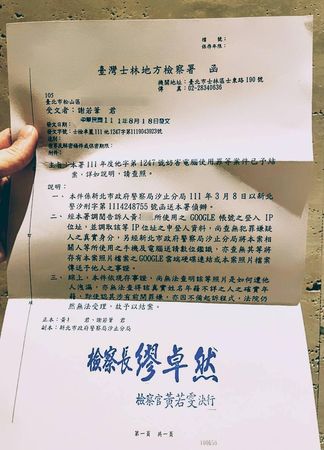 檔　　號：
保存年限：
臺灣士林地方檢察署　函
機關地址：臺北市士林區士東路190號
傳　　真：02-28340636
105
臺北市松山區
受文者：謝若筆　君
發文日期：中華民國111年8月18日發文
發文字號：士檢卓麗111他1247字第1119043923號
速別：
密等及解密條件或保密期限：
附件：
主旨：本署111年度他字第1247號妨害電腦使用罪等案件已予結
案，詳如說明，請查照。
說明：
一、本件係新北市政府警察局汐止分局111年3月8日以新北警
汐刑字第1114248755號函送本署偵辦。
二、經本署調閱告訴人黃　所使用之GOOGLE帳號之登入IP
位址，並調取該等IP位址之申登人資料，尚查無犯罪嫌疑
人之真實身分，另經新北市政府警察局汐止分局將本案相
關人等所使用之手機及電腦送請數位鑑識，亦查無其等將
存有本案照片檔案之GOOGLE雲端硬碟連結或本案照片檔案
傳送予他人之事證。
三、綜上，本件依現存事證，尚無法查明該等照片是如何遭他
人洩漏，亦無法查得該真實姓名年籍不詳之人之確實年
籍，即使認其涉有前開罪嫌，亦因不備起訴程式，法院仍
然無法受理，故予以結案。
正本：黃　　君、謝若筆　君
副本：新北市政府警察局汐止分局
檢察長 繆卓然
檢察官黃若雯決行
第一頁　共一頁